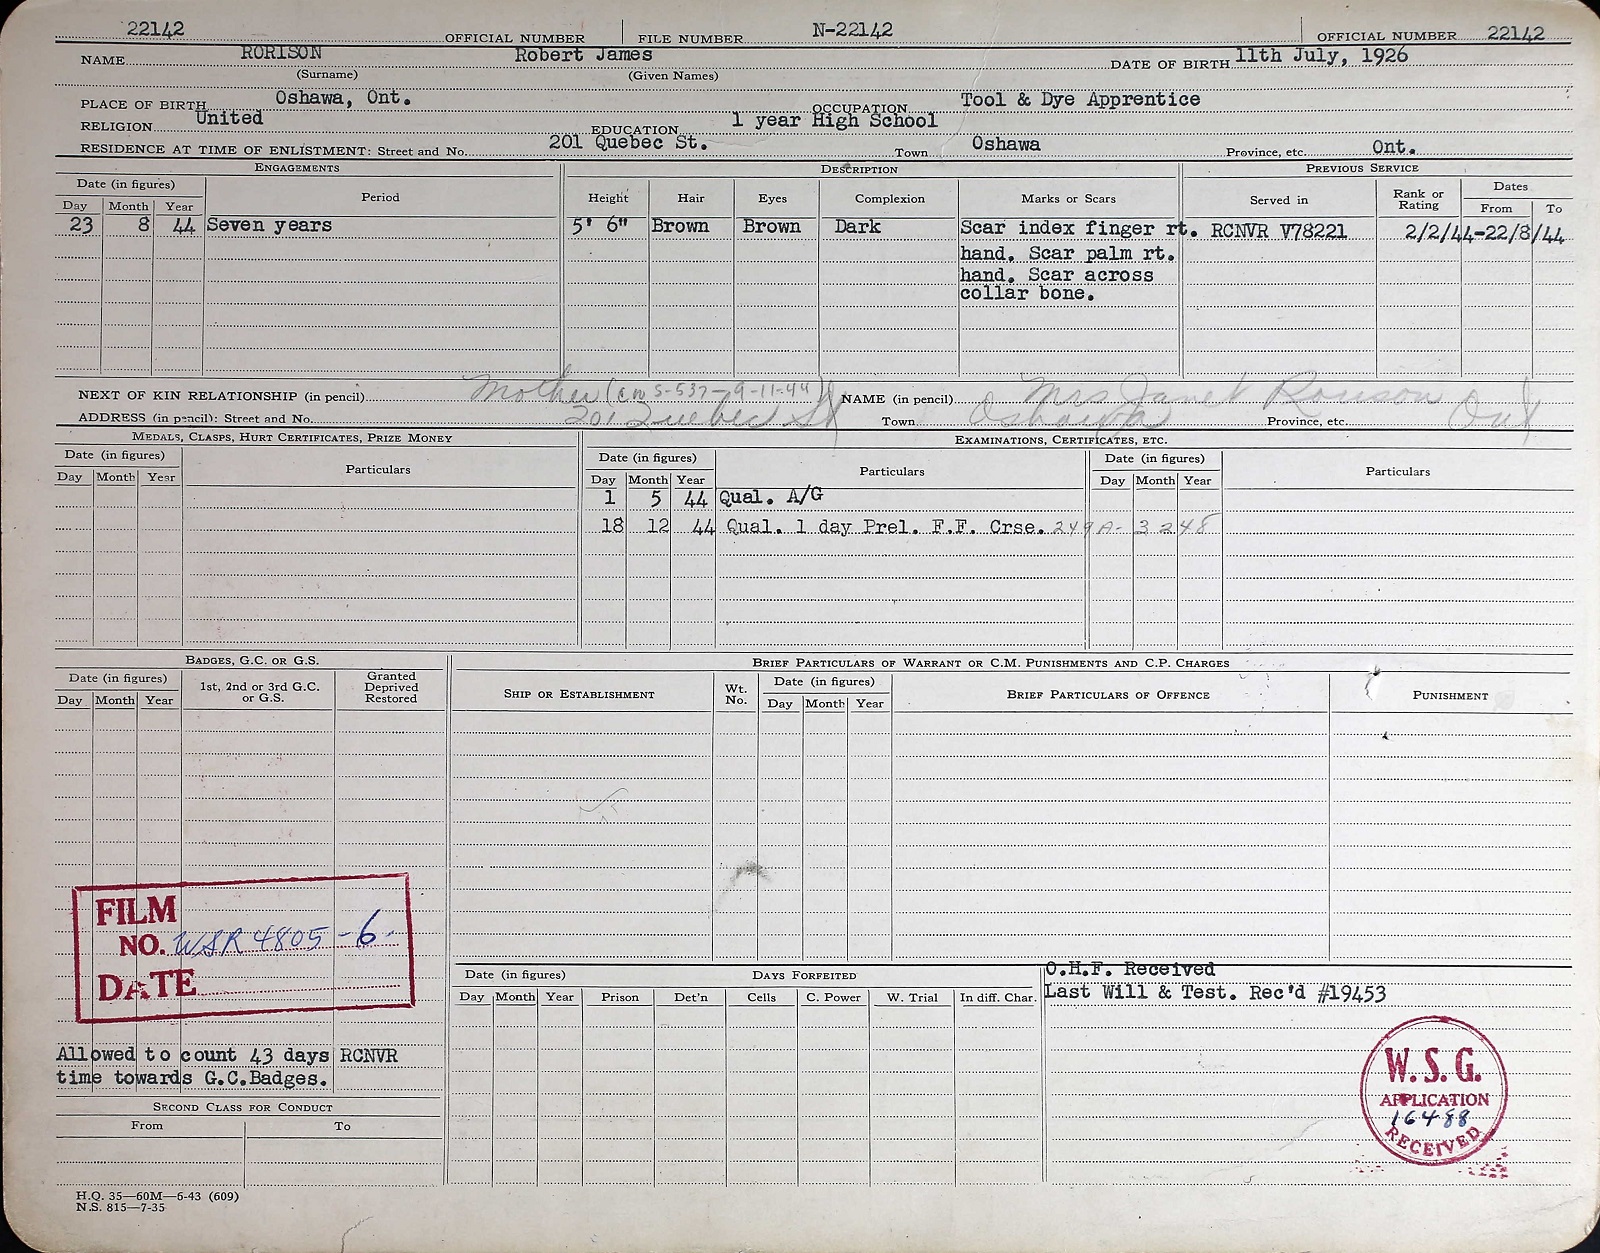 22142 OFFICIAL NUMBER FILE NUMBER N-22142 OFFICIAL NUMBER 22142
NAME RORISON Robert James DATE OF BIRTH 11th July, 1926
(Surname) (Given Names)
PLACE OF BIRTH Oshawa, Ont. OCCUPATION Tool & Dye Apprentice
RELIGION United EDUCATION 1 year High School
RESIDENCE AT TIME OF ENLISTMENT: Street and No. 201 Quebec St. Town Oshawa Province, etc. Ont.
ENGAGEMENTS DESCRIPTION PREVIOUS SERVICE
Date (in figures) Period Height Hair Eyes Complexion Marks or Scars Served in Rank or Rating Dates
Day Month Year From To
23 8 44 Seven years 5' 6" Brown Brown Dark Scar index finger rt. RCNVR V78221 2/2/44-22/8/44
hand. Scar palm rt.
hand. Scar across
collar bone.
NEXT OF KIN RELATIONSHIP (in pencil) Mother (cn S-537-9-11-44) NAME (in pencil) Mrs Janet Rorison
ADDRESS (in pencil): Street and No. 201 Quebec St Town Oshawa Province, etc. Ont
MEDALS, CLASPS, HURT CERTIFICATES, PRIZE MONEY EXAMINATIONS, CERTIFICATES, ETC.
Date (in figures) Particulars Date (in figures) Particulars Date (in figures) Particulars
Day Month Year Day Month Year Day Month Year
1 5 44 Qual. A/G
18 12 44 Qual. 1 day Prel. F.F. Crse. 249A- 3245
BADGES, G.C. OR G.S. BRIEF PARTICULARS OF WARRANT OR C.M. PUNISHMENTS AND C.P. CHARGES
Date (in figures) 1st, 2nd or 3rd G.C. or G.S. Granted Deprived Restored SHIP OR ESTABLISHMENT Wt. No. Date (in figures) BRIEF PARTICULARS OF OFFENCE PUNISHMENT
Day Month Year Day Month Year
FILM
NO. WSR 4805-6-
DATE
Date (in figures) DAYS FORFEITED O.H.F. Received
Day Month Year Prison Det'n Cells C. Power W. Trial In diff. Char. Last Will & Test. Rec'd #19453
W.S.G.
APPLICATION
16488
RECEIVED
Allowed to count 43 days RCNVR
time towards G.C.Badges.
SECOND CLASS FOR CONDUCT
From To
H.Q. 35—60M—6-43 (609)
N.S. 815—7-35